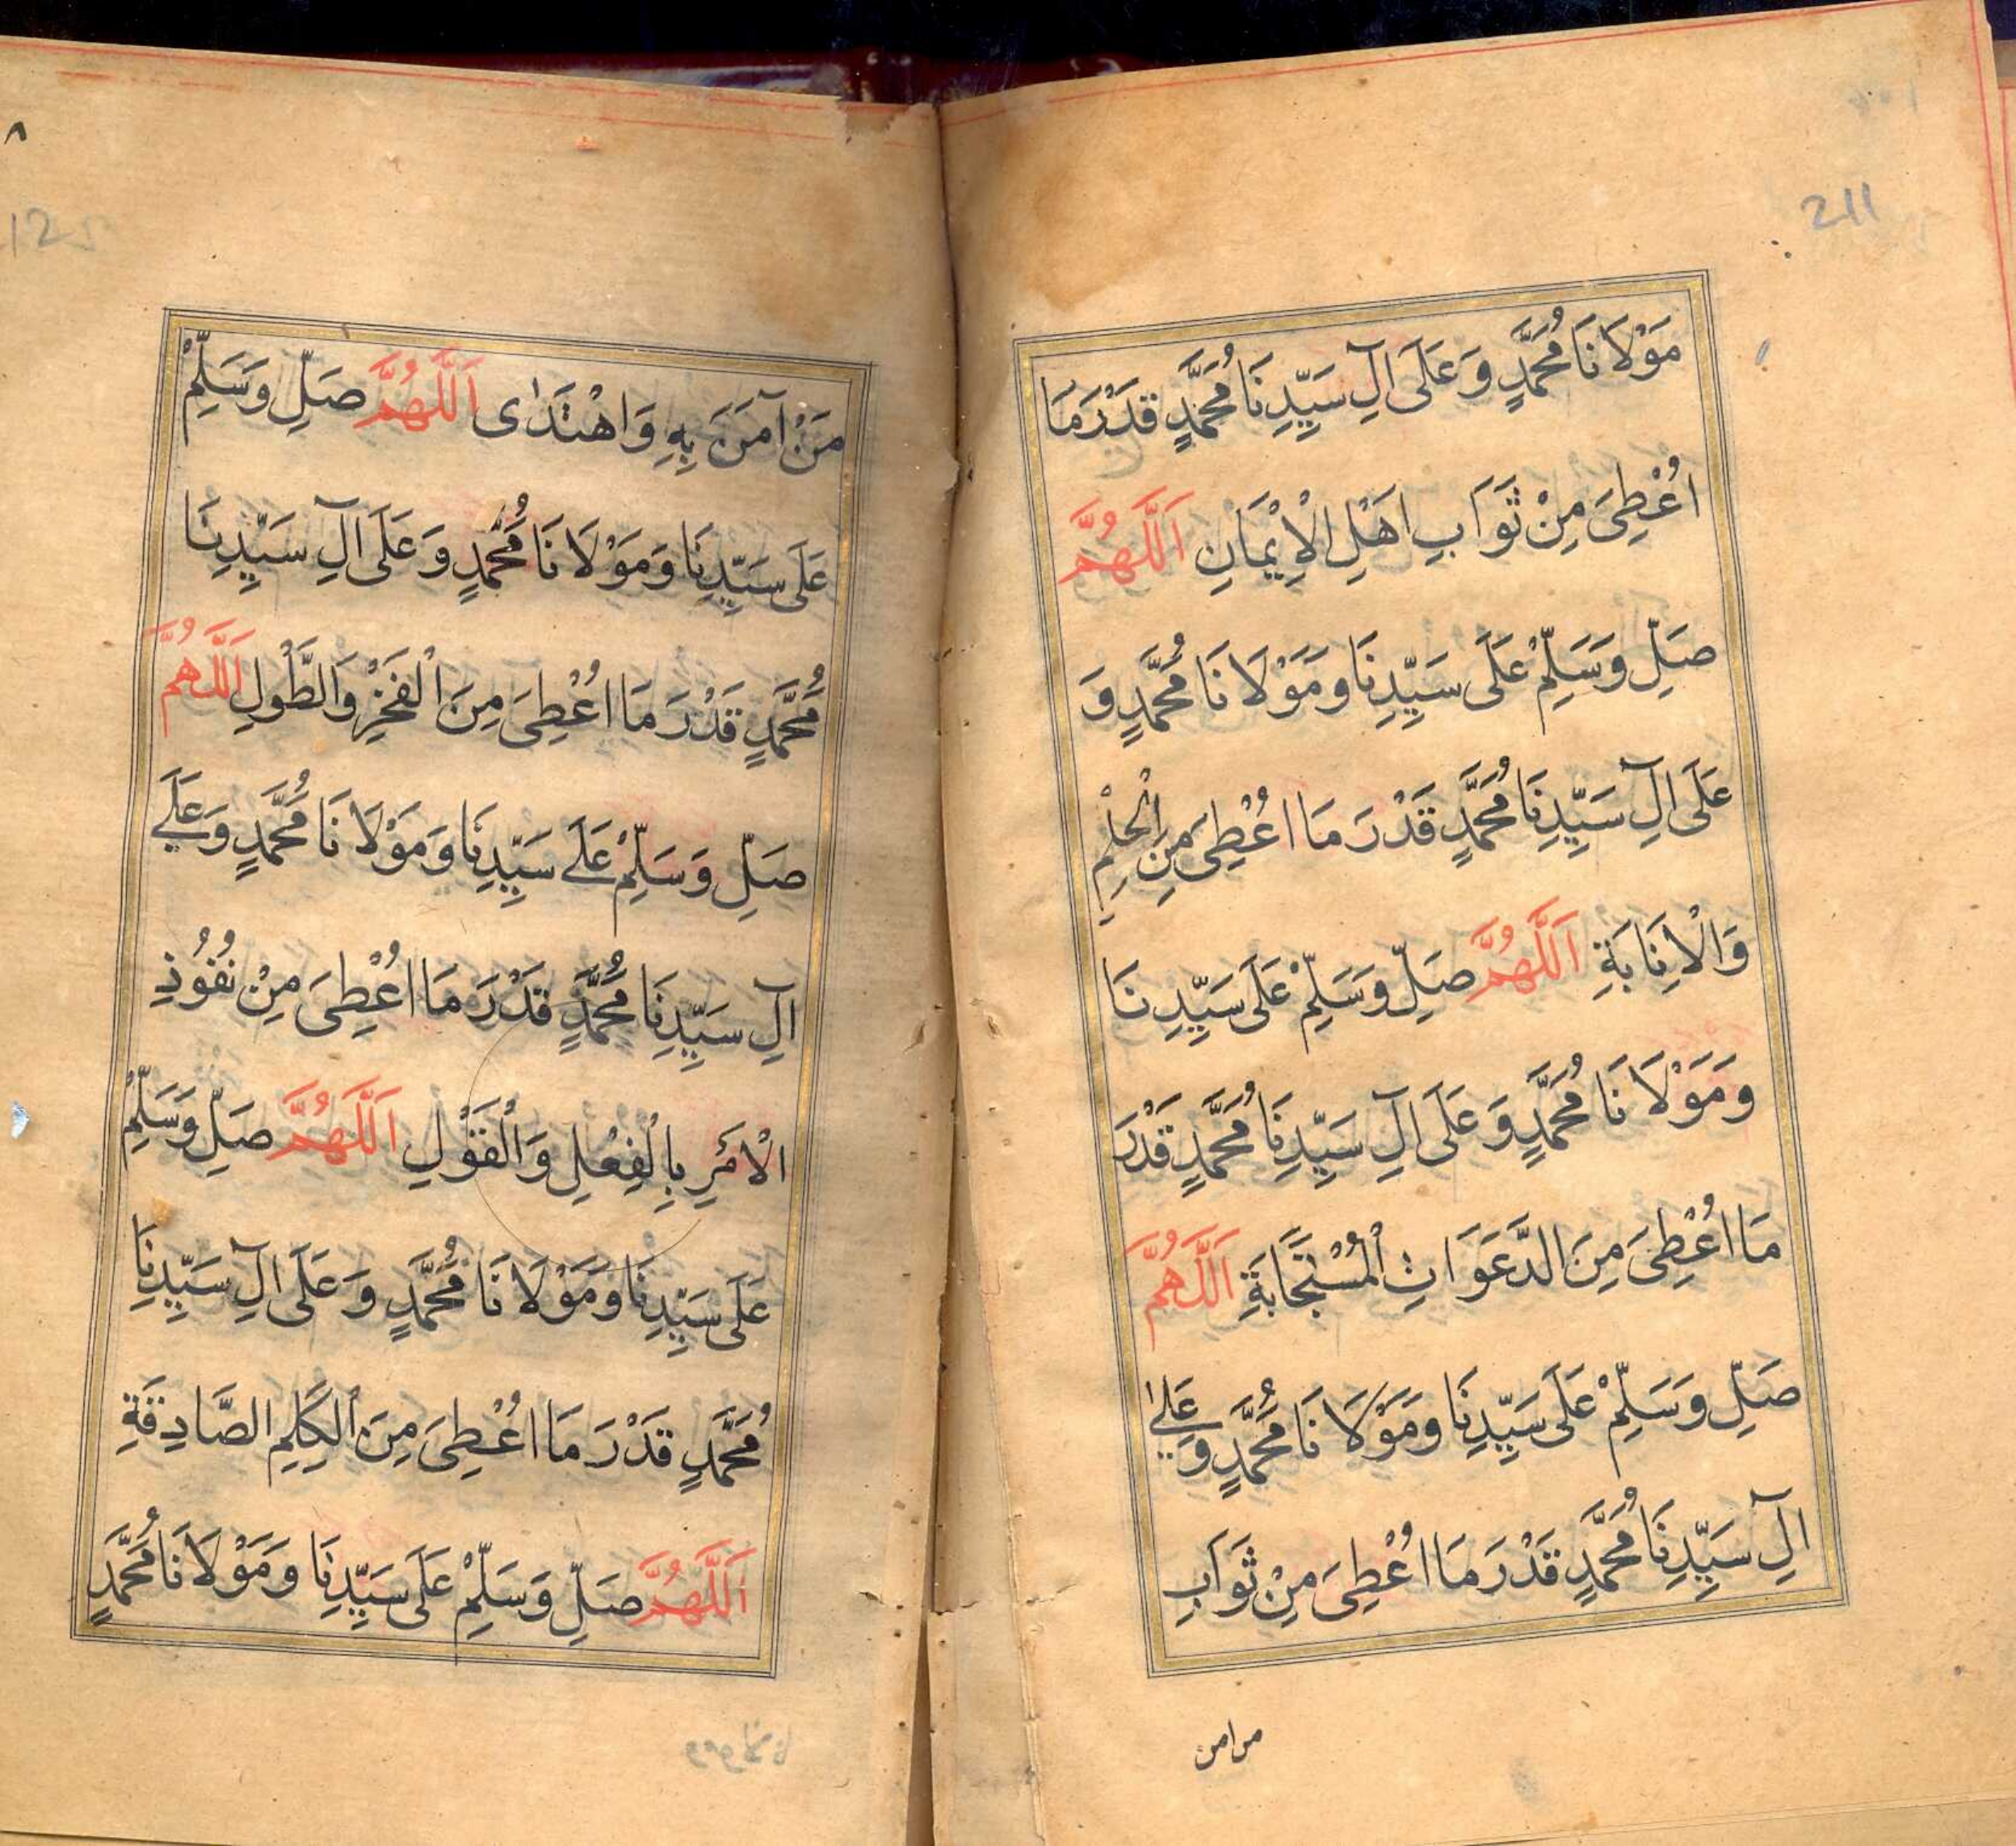 211
مَوْلَانَا مُحَمَّدٍ وَعَلَى آلِ سَيِّدِنَا مُحَمَّدٍ قَدْرَ مَا
اُعْطِىَ مِنْ ثَوَابِ اَهْلِ الْاِيْمَانِ اَللّٰهُمَّ
صَلِّ وَسَلِّمْ عَلَى سَيِّدِنَا وَمَوْلَانَا مُحَمَّدٍ وَ
عَلَى آلِ سَيِّدِنَا مُحَمَّدٍ قَدْرَ مَا اُعْطِىَ مِنَ الْحِلْمِ
وَالْاِنَابَةِ اَللّٰهُمَّ صَلِّ وَسَلِّمْ عَلَى سَيِّدِنَا
وَمَوْلَانَا مُحَمَّدٍ وَعَلَى آلِ سَيِّدِنَا مُحَمَّدٍ قَدْرَ
مَا اُعْطِىَ مِنَ الدَّعَوَاتِ الْمُسْتَجَابَةِ اَللّٰهُمَّ
صَلِّ وَسَلِّمْ عَلَى سَيِّدِنَا وَمَوْلَانَا مُحَمَّدٍ وَعَلٰے
آلِ سَيِّدِنَا مُحَمَّدٍ قَدْرَ مَا اُعْطِىَ مِنْ ثَوَابِ
من امن
٨
مَنْ آمَنَ بِهِ وَاهْتَدٰى اَللّٰهُمَّ صَلِّ وَسَلِّمْ
عَلَى سَيِّدِنَا وَمَوْلَانَا مُحَمَّدٍ وَعَلَى آلِ سَيِّدِنَا
مُحَمَّدٍ قَدْرَ مَا اُعْطِىَ مِنَ الْفَخْرِ وَالطَّوْلِ اَللّٰهُمَّ
صَلِّ وَسَلِّمْ عَلَے سَيِّدِنَا وَمَوْلَانَا مُحَمَّدٍ وَعَلَے
آلِ سَيِّدِنَا مُحَمَّدٍ قَدْرَ مَا اُعْطِىَ مِنْ نُفُوْذِ
الْاَمْرِ بِالْفِعْلِ وَالْقَوْلِ اَللّٰهُمَّ صَلِّ وَسَلِّمْ
عَلَى سَيِّدِنَا وَمَوْلَانَا مُحَمَّدٍ وَعَلَى آلِ سَيِّدِنَا
مُحَمَّدٍ قَدْرَ مَا اُعْطِىَ مِنَ الْكَلِمِ الصَّادِقَةِ
اَللّٰهُمَّ صَلِّ وَسَلِّمْ عَلَى سَيِّدِنَا وَمَوْلَانَا مُحَمَّدٍ